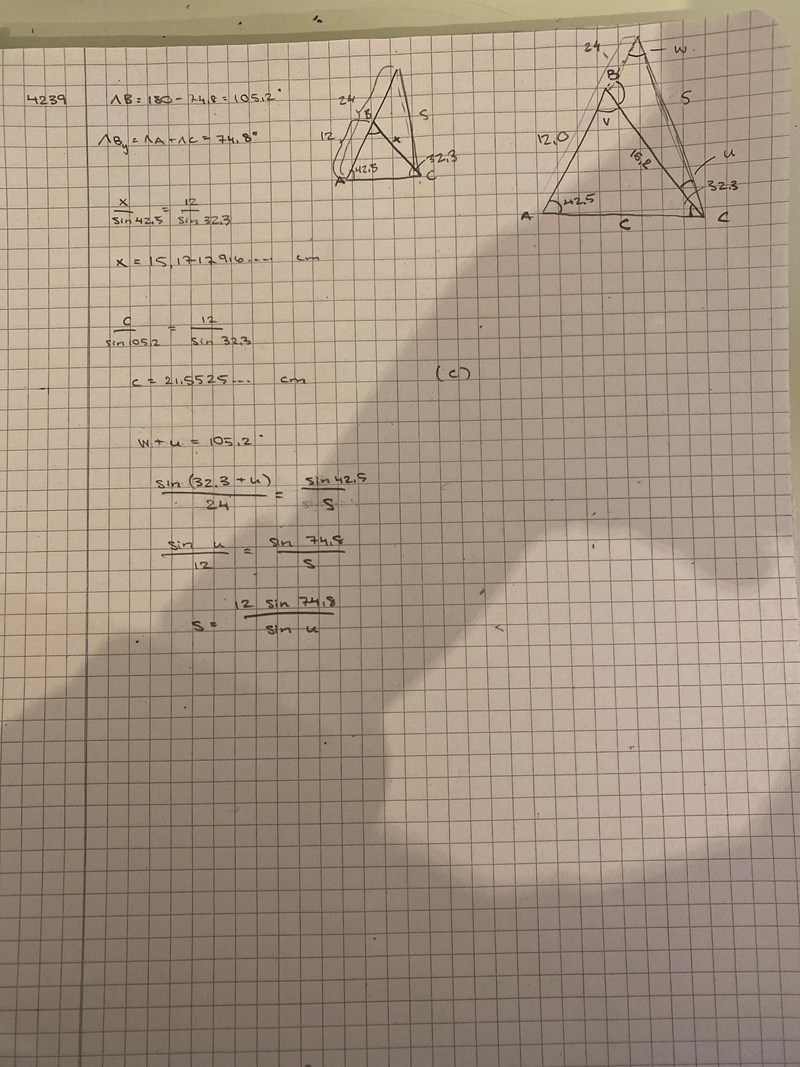 4239
∧B = 180 - 74,8 = 105,2°
∧By = ∧A + ∧C = 74,8°
x/sin 42.5 = 12/sin 32.3
x = 15,1717916.... cm
c/sin 105,2 = 12/sin 32,3
c = 21,5525... cm
(c)
w + u = 105,2°
sin (32.3 + u)/24 = sin 42,5/s
sin u/12 = sin 74,8/s
s = 12 sin 74,8/sin u
24
B
12
x
s
A
42.5
32.3
C
24
w
B
s
12,0
v
15,2
u
32.3
A
42.5
c
C